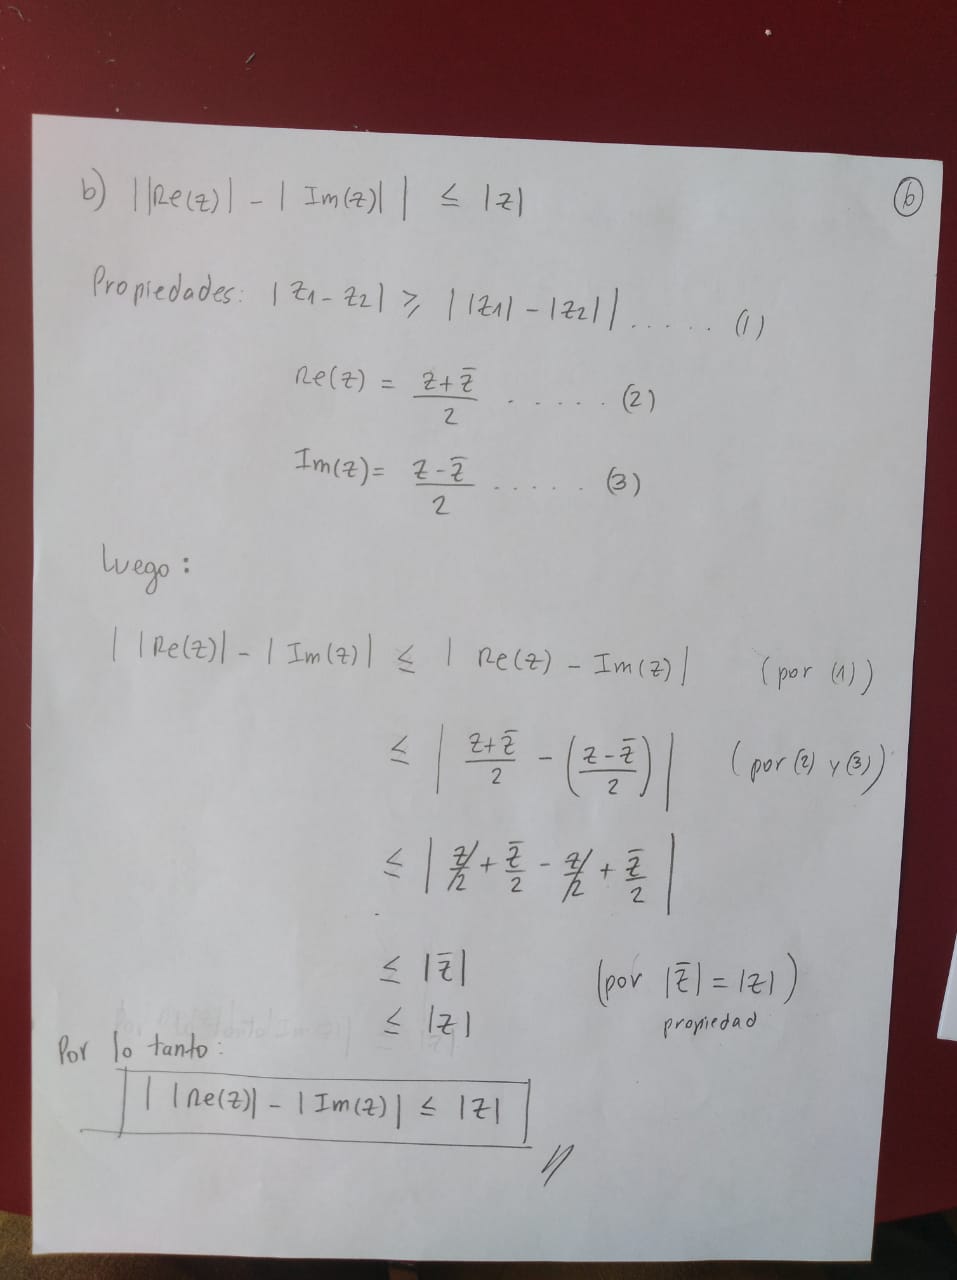 b) ||Re(z)| - | Im(z)| | ≤ |z|
6
Propiedades: | z1 - z2 | ≥ | |z1| - |z2| | ..... (1)
Re(z) = (z + z̄)/2 ..... (2)
Im(z) = (z - z̄)/2 ..... (3)
Luego:
| | Re(z)| - | Im(z) | ≤ | Re(z) - Im(z) | (por (1))
≤ | (z + z̄)/2 - ((z - z̄)/2) | (por (2) y (3))
≤ | z/2 + z̄/2 - z/2 + z̄/2 |
≤ |z̄| (por |z̄| = |z|)
≤ |z| propiedad
Por lo tanto:
| | Re(z)| - | Im(z) | ≤ |z|